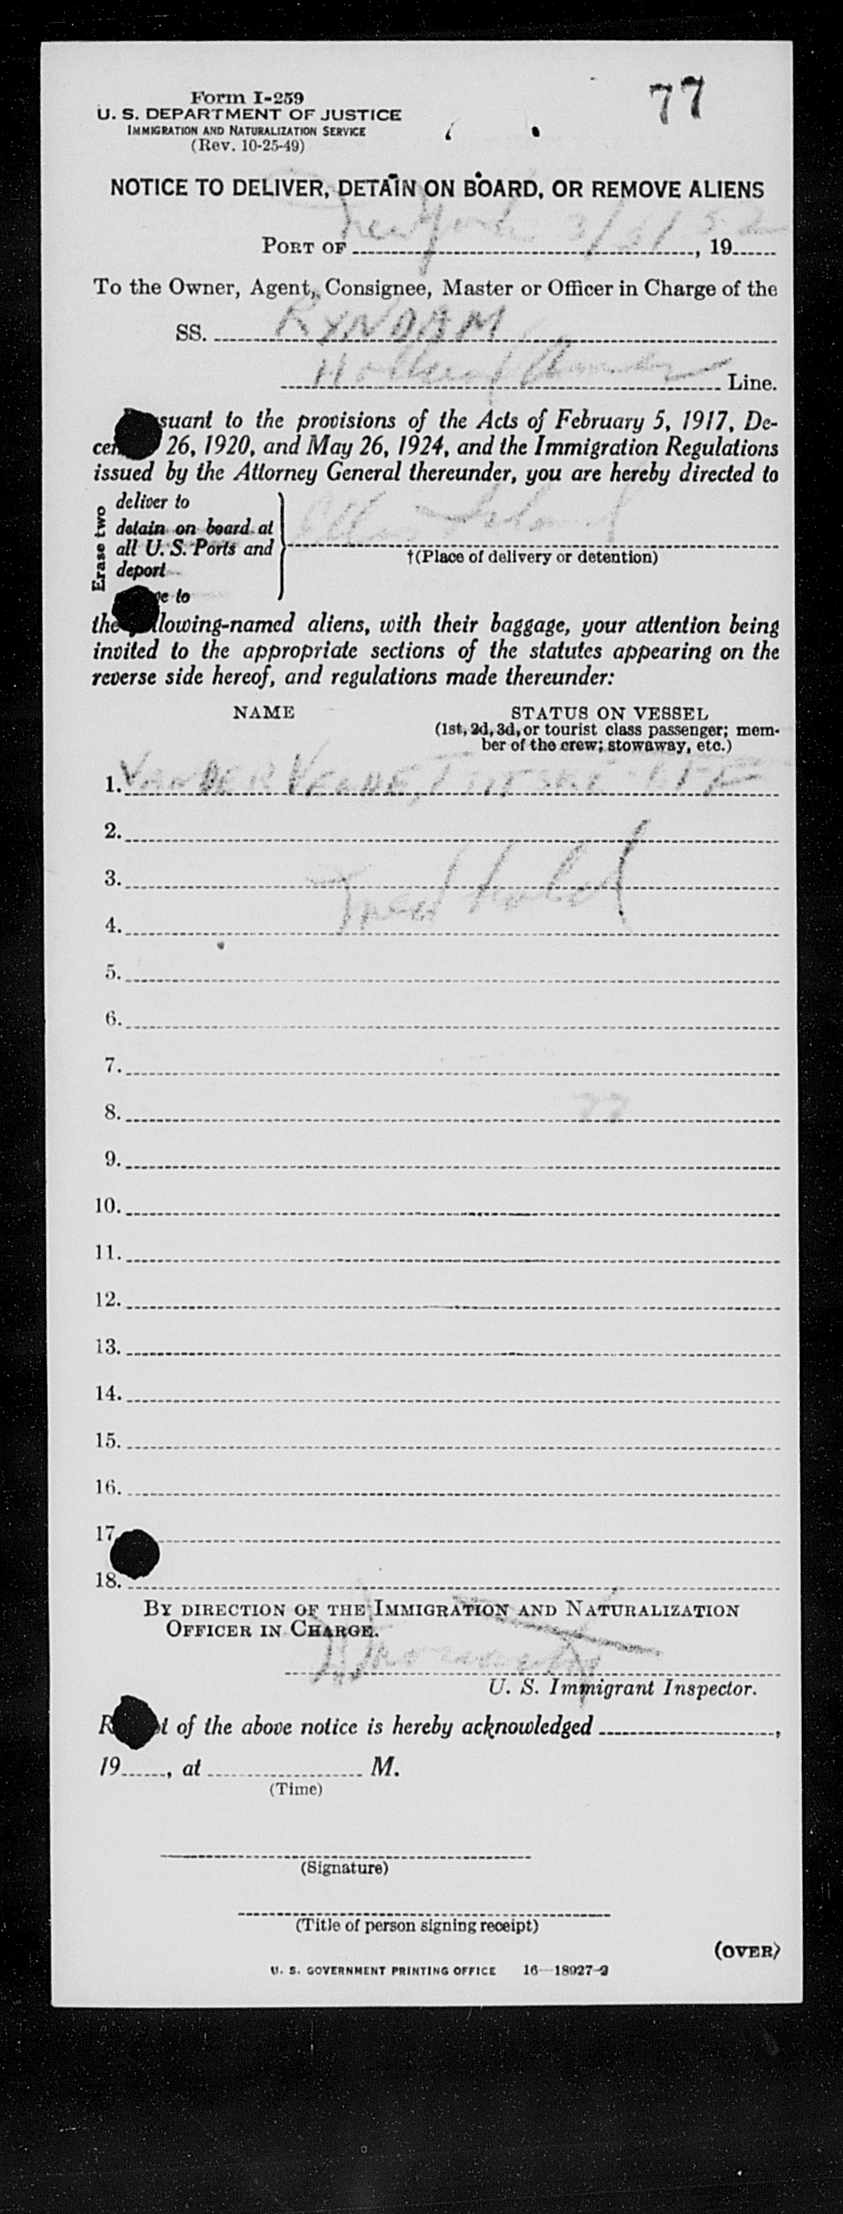 Form I-259
77
U. S. DEPARTMENT OF JUSTICE
IMMIGRATION AND NATURALIZATION SERVICE
(Rev. 10-25-49)
NOTICE TO DELIVER, DETAIN ON BOARD, OR REMOVE ALIENS
PORT OF New York 3/3/52, 19
To the Owner, Agent, Consignee, Master or Officer in Charge of the
SS. RYNDAM
Holland Amer Line.
suant to the provisions of the Acts of February 5, 1917, De-
cem 26, 1920, and May 26, 1924, and the Immigration Regulations
issued by the Attorney General thereunder, you are hereby directed to
Erase two
deliver to
detain on board at
all U. S. Ports and
deport
to
Ellis Island
†(Place of delivery or detention)
the llowing-named aliens, with their baggage, your attention being
invited to the appropriate sections of the statutes appearing on the
reverse side hereof, and regulations made thereunder:
NAME STATUS ON VESSEL
(1st, 2d, 3d, or tourist class passenger; mem-
ber of the crew; stowaway, etc.)
1. VAN DER
2.
3. Med hold
4.
5.
6.
7.
8. 77
9.
10.
11.
12.
13.
14.
15.
16.
17
18.
BY DIRECTION OF THE IMMIGRATION AND NATURALIZATION
OFFICER IN CHARGE.
U. S. Immigrant Inspector.
R t of the above notice is hereby acknowledged ,
19 , at M.
(Time)
(Signature)
(Title of person signing receipt)
(OVER)
U. S. GOVERNMENT PRINTING OFFICE 16—18927-2